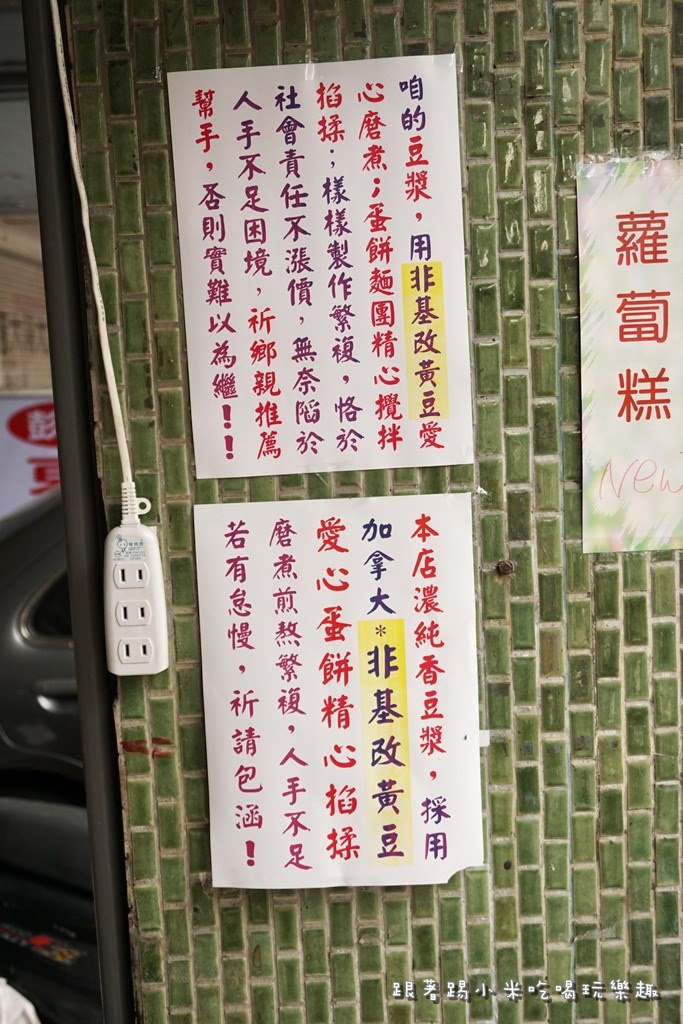 咱的豆漿，用非基改黃豆愛
心磨煮；蛋餅麵團精心攪拌
掐揉；樣樣製作繁複，恪於
社會責任不漲價，無奈陷於
人手不足困境，祈鄉親推薦
幫手，否則實難以為繼！！
本店濃純香豆漿，採用
加拿大*非基改黃豆
愛心蛋餅精心掐揉
磨煮煎熬繁複，人手不足
若有怠慢，祈請包涵！
蘿蔔糕
New
跟著踢小米吃喝玩樂趣